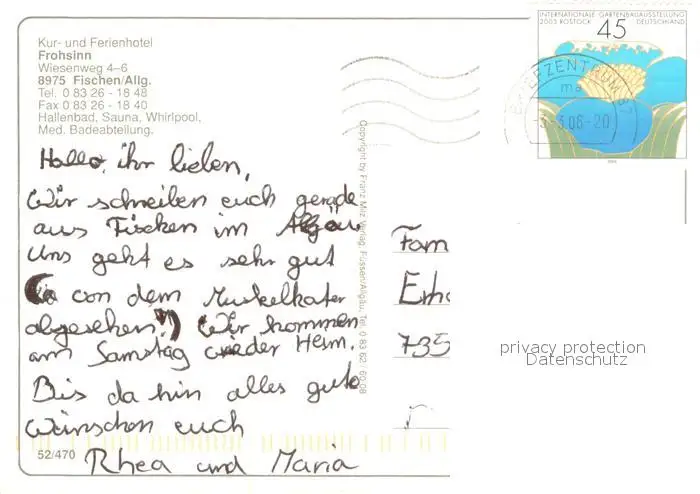 Kur- und Ferienhotel
Frohsinn
Wiesenweg 4-6
8975 Fischen/Allg.
Tel. 0 83 26 - 18 48
Fax 0 83 26 - 18 40
Hallenbad, Sauna, Whirlpool,
Med. Badeabteilung.
Hallo, ihr lieben,
Wir schreiben euch gerade
aus Fischen im Allgäu
Uns geht es sehr gut
von dem Muskelkater
abgesehen!") Wir kommen
am Samstag wieder Heim.
Bis da hin alles gute
wünschen euch
Rhea und Maria
52/470
Copyright by Franz Milz Verlag, Füssen/Allgäu, Tel. 0 83 62 / 60 08
INTERNATIONALE GARTENBAUAUSSTELLUNG
2003 ROSTOCK DEUTSCHLAND
45
BRIEFZENTRUM 87
ma
-3.-3.06-20
Fam
Erh
735
privacy protection
Datenschutz